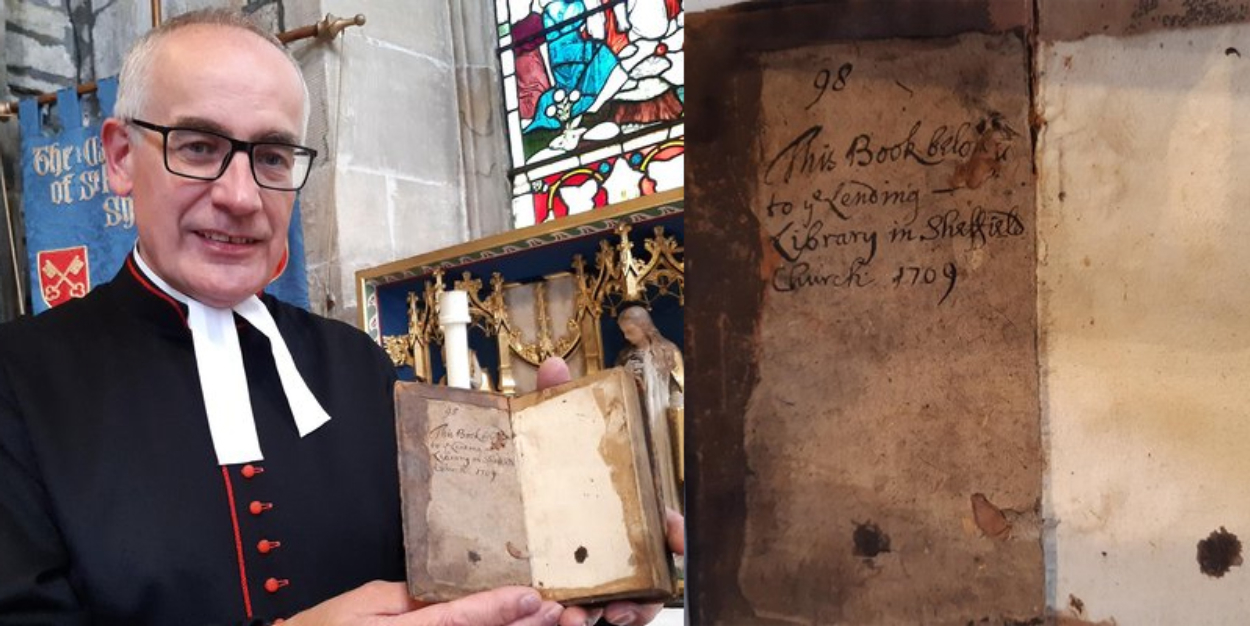 The
of St
98
This Book belon
to ye Lending
Library in Sheffield
Church 1709
98
This Book
to ye Lending
Library in Sheffield
Church 1709